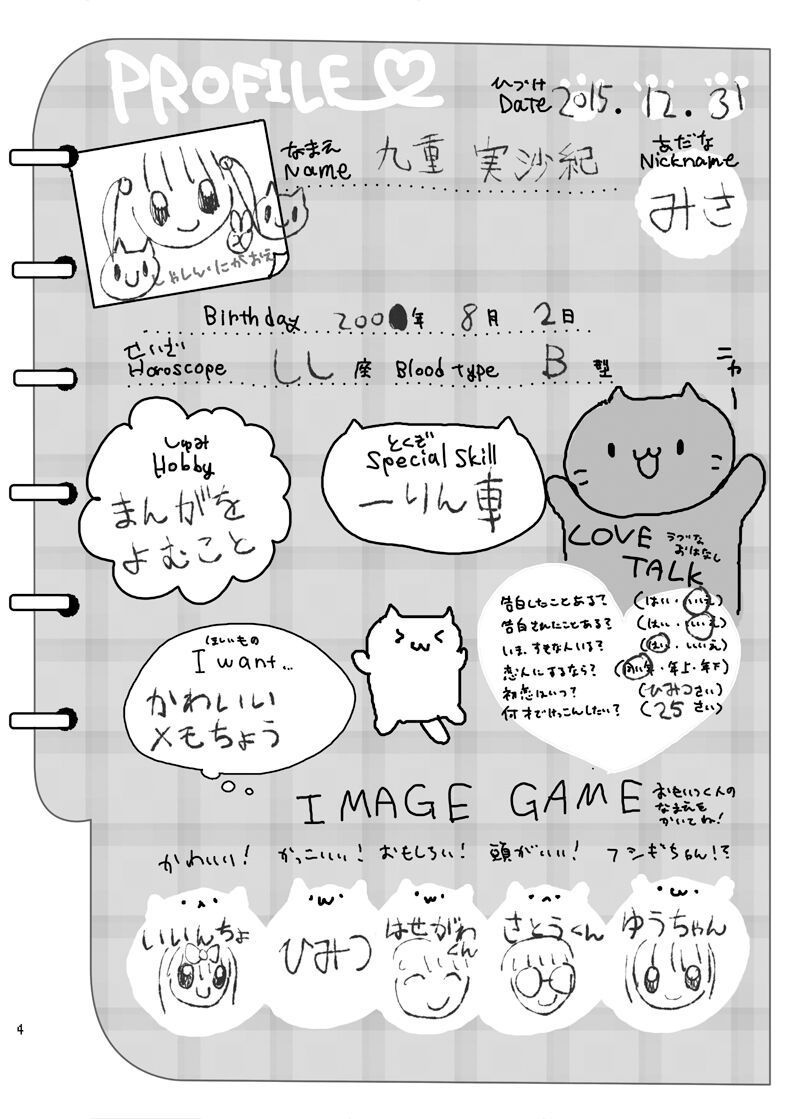 PROFILE
ひづけ
Date 2015.12.31
なまえ
Name 九重 実沙紀
あだな
Nickname
みさ
しゃしん・にがおえ
Birthday 200 年 8月 2日
せいざ
Horoscope しし座 Blood type B型
ニャー
しゅみ
Hobby
まんがを
よむこと
とくぎ
Special Skill
一りん車
LOVE TALK
ラブな
おはなし
告白したことある? (はい・いいえ)
告白されたことある? (はい・いいえ)
いま、すきなんいる? (はい・いいえ)
恋人にするなら? (同い年・年上・年下)
初恋はいつ? (ひみつさい)
何才でけっこんしたい? (25さい)
ほしいもの
I want...
かわいい
メモちょう
IMAGE GAME
おもいつく人の
なまえを
かいてね!
かわいい! かっこいい! おもしろい! 頭がいい! フシギちゃん!?
いいんちょ
ひみつ
はせがわ
くん
さとうくん
ゆうちゃん
4